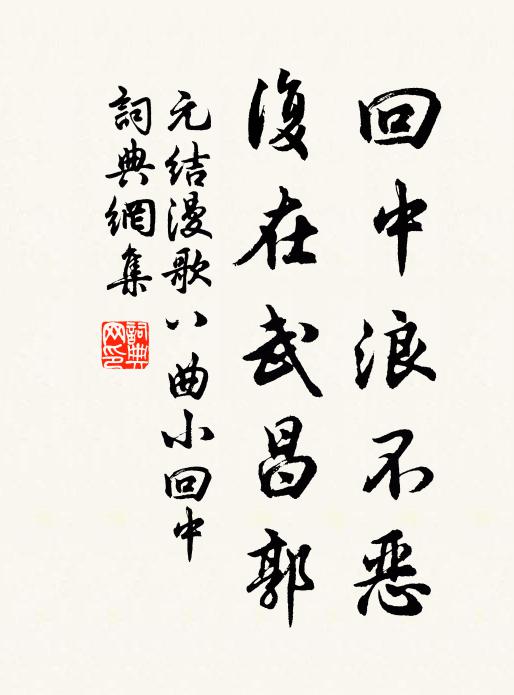 回中浪不惡
復在武昌郭
元結漫歌八曲小回中
詞典網集
詞典网印